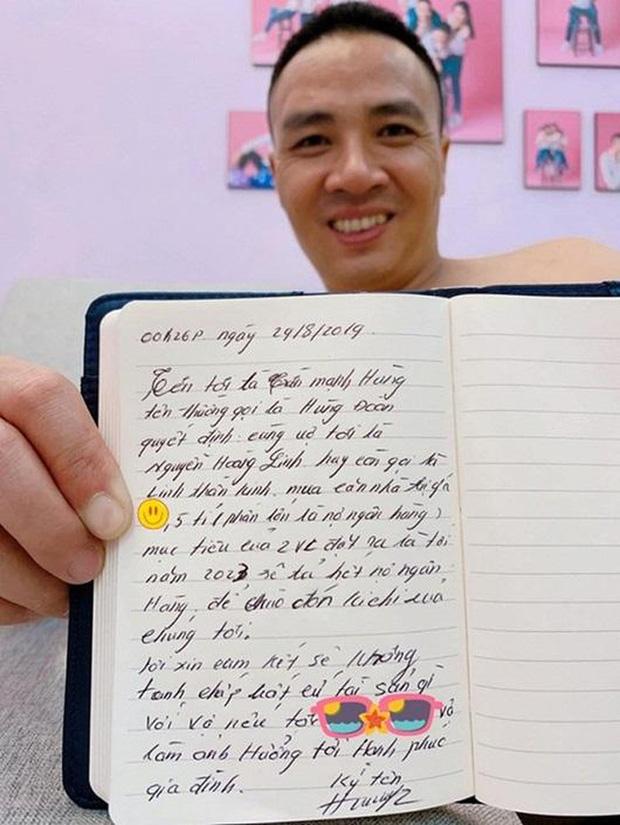 00h26P ngày 29/8/2019.
Tên tôi là Trần mạnh Hùng
tên thường gọi là Hùng Đoàn
quyết định cùng vợ tôi là
Nguyễn Hoàng Linh hay còn gọi là
Linh thần kinh. mua căn nhà trị giá
,5 tỉ ( phần lớn là nợ ngân hàng )
mục tiêu của 2 VC đặt ra là tới
năm 2023 sẽ trả hết nợ ngân
Hàng, để chào đón Kichi của
chúng tôi.
tôi xin cam kết sẽ không
tranh chấp bất cứ tài sản gì
với vợ nếu tôi và
làm ảnh Hưởng tới Hạnh phúc
gia đình.
Ký tên